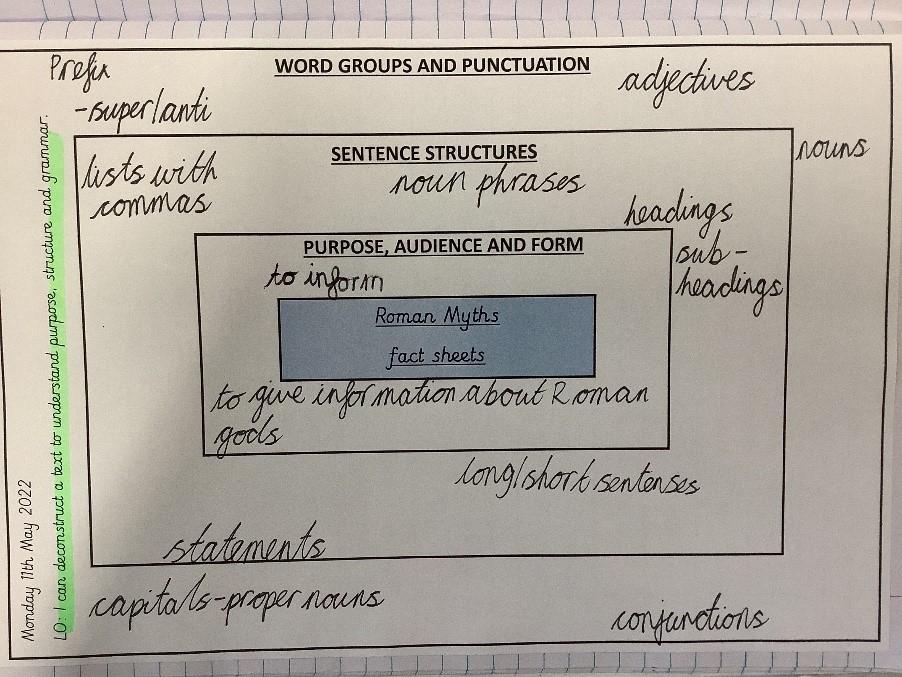 Prefix
-super/anti
WORD GROUPS AND PUNCTUATION
adjectives
nouns
SENTENCE STRUCTURES
lists with
commas
noun phrases
headings
sub-
headings
PURPOSE, AUDIENCE AND FORM
to inform
Roman Myths
fact sheets
to give information about Roman
gods
long/short sentences
statements
capitals-proper nouns
conjunctions
Monday 11th May 2022
LO: I can deconstruct a text to understand purpose, structure and grammar.